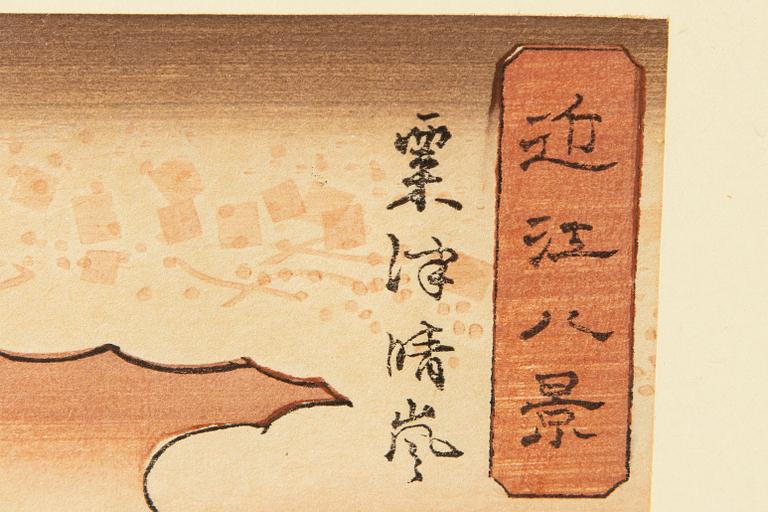 近江八景
粟津晴嵐